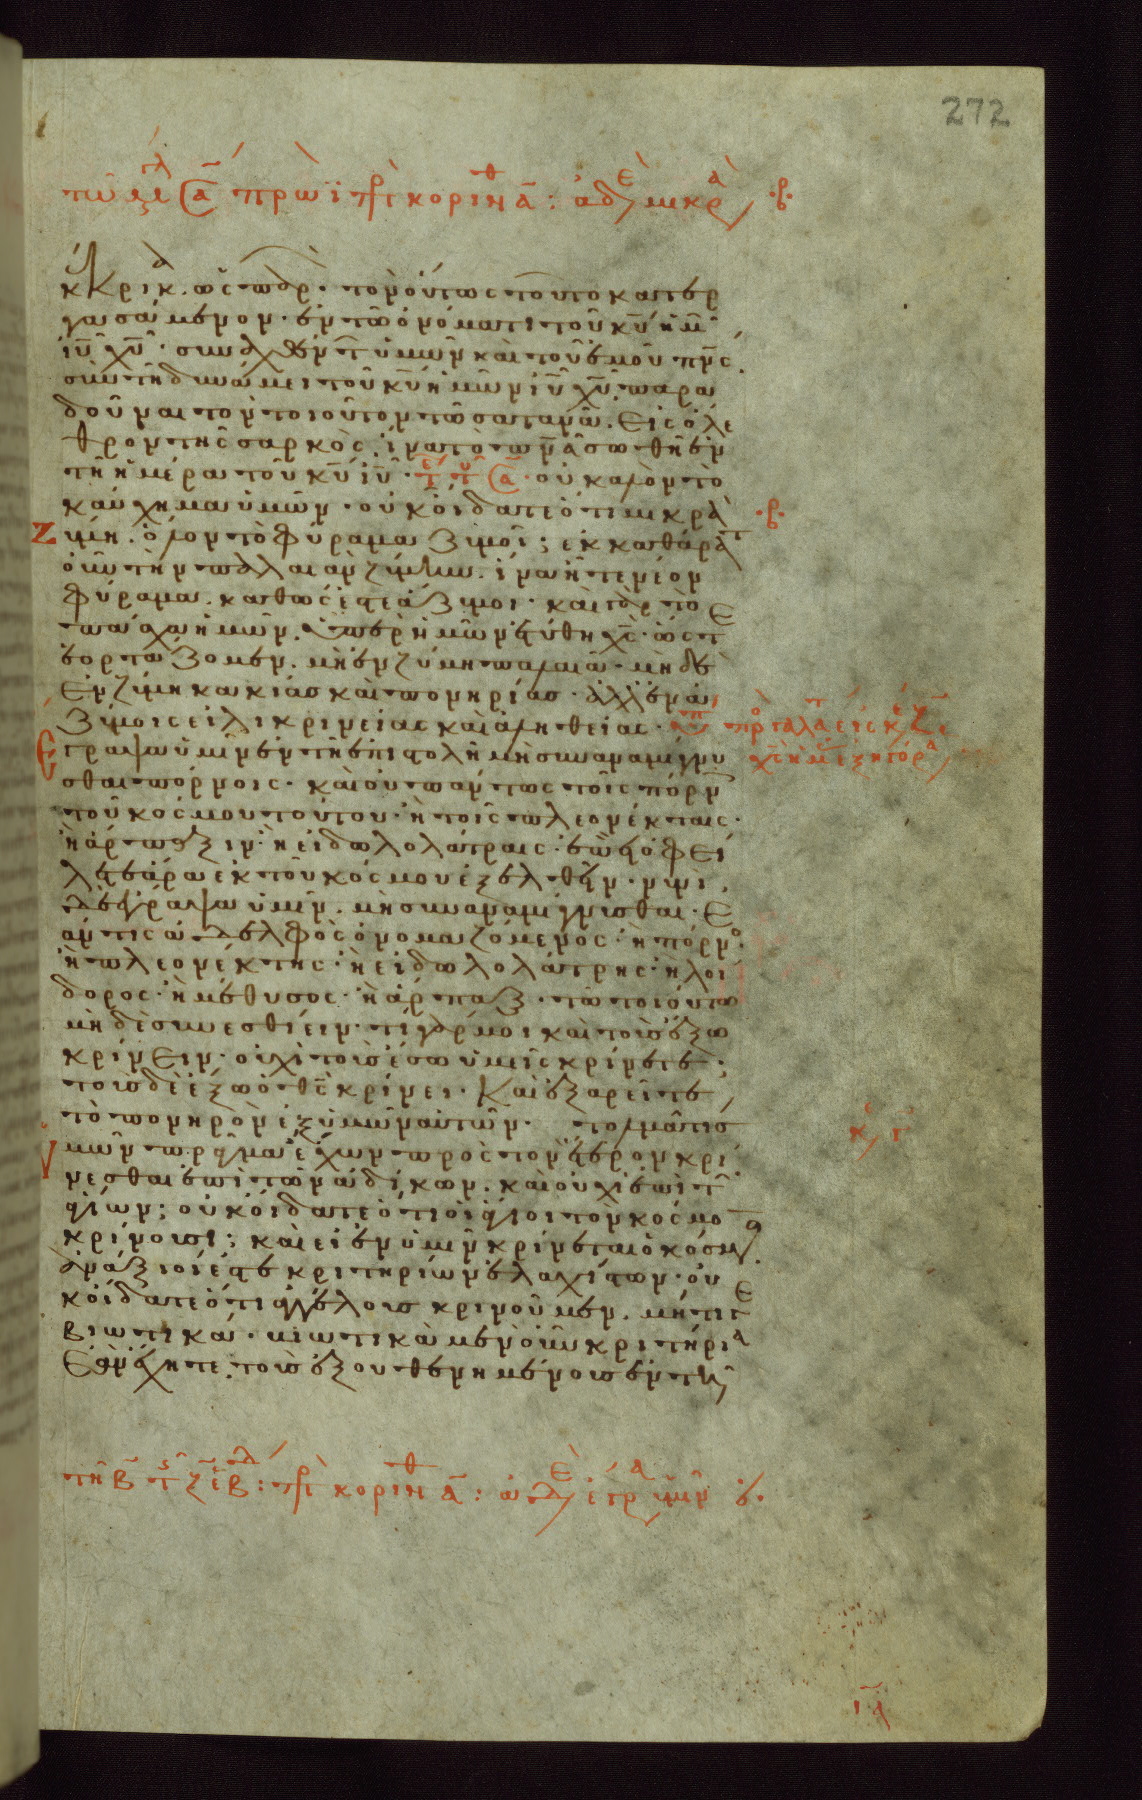 272
τῶ μγ σα πρωῒ πρ κορινθ α: ἀδε μικρὰ ·β·
κέκρικα ὡς παρὼν · τὸν οὕτως τοῦτο κατερ
γασάμενον · ἐν τῶ ὀνόματι τοῦ κυ ἡμ
ιυ χυ · συναχθέντ ὑμῶν καὶ τοῦ ἐμοῦ πνς
σὺν τῆ δυνάμει τοῦ κυ ἡμῶν ιυ χυ · παρα
δοῦναι τὸν τοιοῦτον τῶ σατανᾶ · εἰς ὄλε
θρον τῆς σαρκὸς · ἵνα τὸ πνα σωθῆ ἐν
τῆ ἡμέρα τοῦ κυ ιυ · τε τ σα · οὐ καλὸν τὸ
καύχημα ὑμῶν · οὐκ οἴδατε ὅτι μικρὰ
·β·
ζύμη · ὅλον τὸ φύραμα ζυμοῖ; ἐκκαθάρατ
οὖν τὴν παλαιὰν ζύμην · ἵνα ἦτε νέον
φύραμα · καθώς ἐστε ἄζυμοι · καὶ γὰρ τὸ
πάσχα ἡμῶν · ὑπὲρ ἡμῶν ἐτύθη χς · ὥστε
ἑορτάζομεν · μὴ ἐν ζύμη παλαιᾶ · μηδὲ
ἐν ζύμη κακίας καὶ πονηρίας · ἀλλ' ἐν ἀ
ζύμοις εἰλικρινείας καὶ ἀληθείας ·
ἔγραψα ὑμῖν ἐν τῆ ἐπιστολῆ μὴ συναναμίγνυ
σθαι πόρνοις · καὶ οὐ πάντως τοῖς πόρν
τοῦ κόσμου τούτου · ἢ τοῖς πλεονέκταις ·
ἢ ἅρπαξιν · ἢ εἰδωλολάτραις · ἐπεὶ ὀφεί
λετε ἄρα ἐκ τοῦ κόσμου ἐξελθεῖν · νυνὶ
δὲ ἔγραψα ὑμῖν · μὴ συναναμίγνυσθαι · ἐ
άν τις ἀδελφὸς ὀνομαζόμενος · ἢ πόρνο
ἢ πλεονέκτης · ἢ εἰδωλολάτρης · ἢ λοί
δορος · ἢ μέθυσος · ἢ ἅρπαξ · τῶ τοιούτω
μηδὲ συνεσθίειν · τί γάρ μοι καὶ τοὺς ἔξω
κρίνειν · οὐχὶ τοὺς ἔσω ὑμεῖς κρίνετε ·
τοὺς δὲ ἔξω ὁ θς κρίνει · Καὶ ἐξαρεῖτε
τὸ πονηρὸν ἐξ ὑμῶν αὐτῶν · τολμᾶ τις
ὑμῶν πρᾶγμα ἔχων πρὸς τὸν ἕτερον κρί
νεσθαι ἐπὶ τῶν ἀδίκων · καὶ οὐχὶ ἐπὶ τ
ἁγίων; οὐκ οἴδατε ὅτι οἱ ἅγιοι τὸν κόσμο
κρινοῦσι; καὶ εἰ ἐν ὑμῖν κρίνεται ὁ κόσμ
ἀνάξιοί ἐστε κριτηρίων ἐλαχίστων · οὐ
κ οἴδατε ὅτι ἀγγέλους κρινοῦμεν · μήτιγε
βιωτικά · βιωτικὰ μὲν οὖν κριτήρια
ἐὰν ἔχητε · τοὺς ἐξουθενημένους ἐν τῆ
τῆ β τ ζ εβ: πρ κορινθ α: ἀδε ἔγρα ὑμῖν